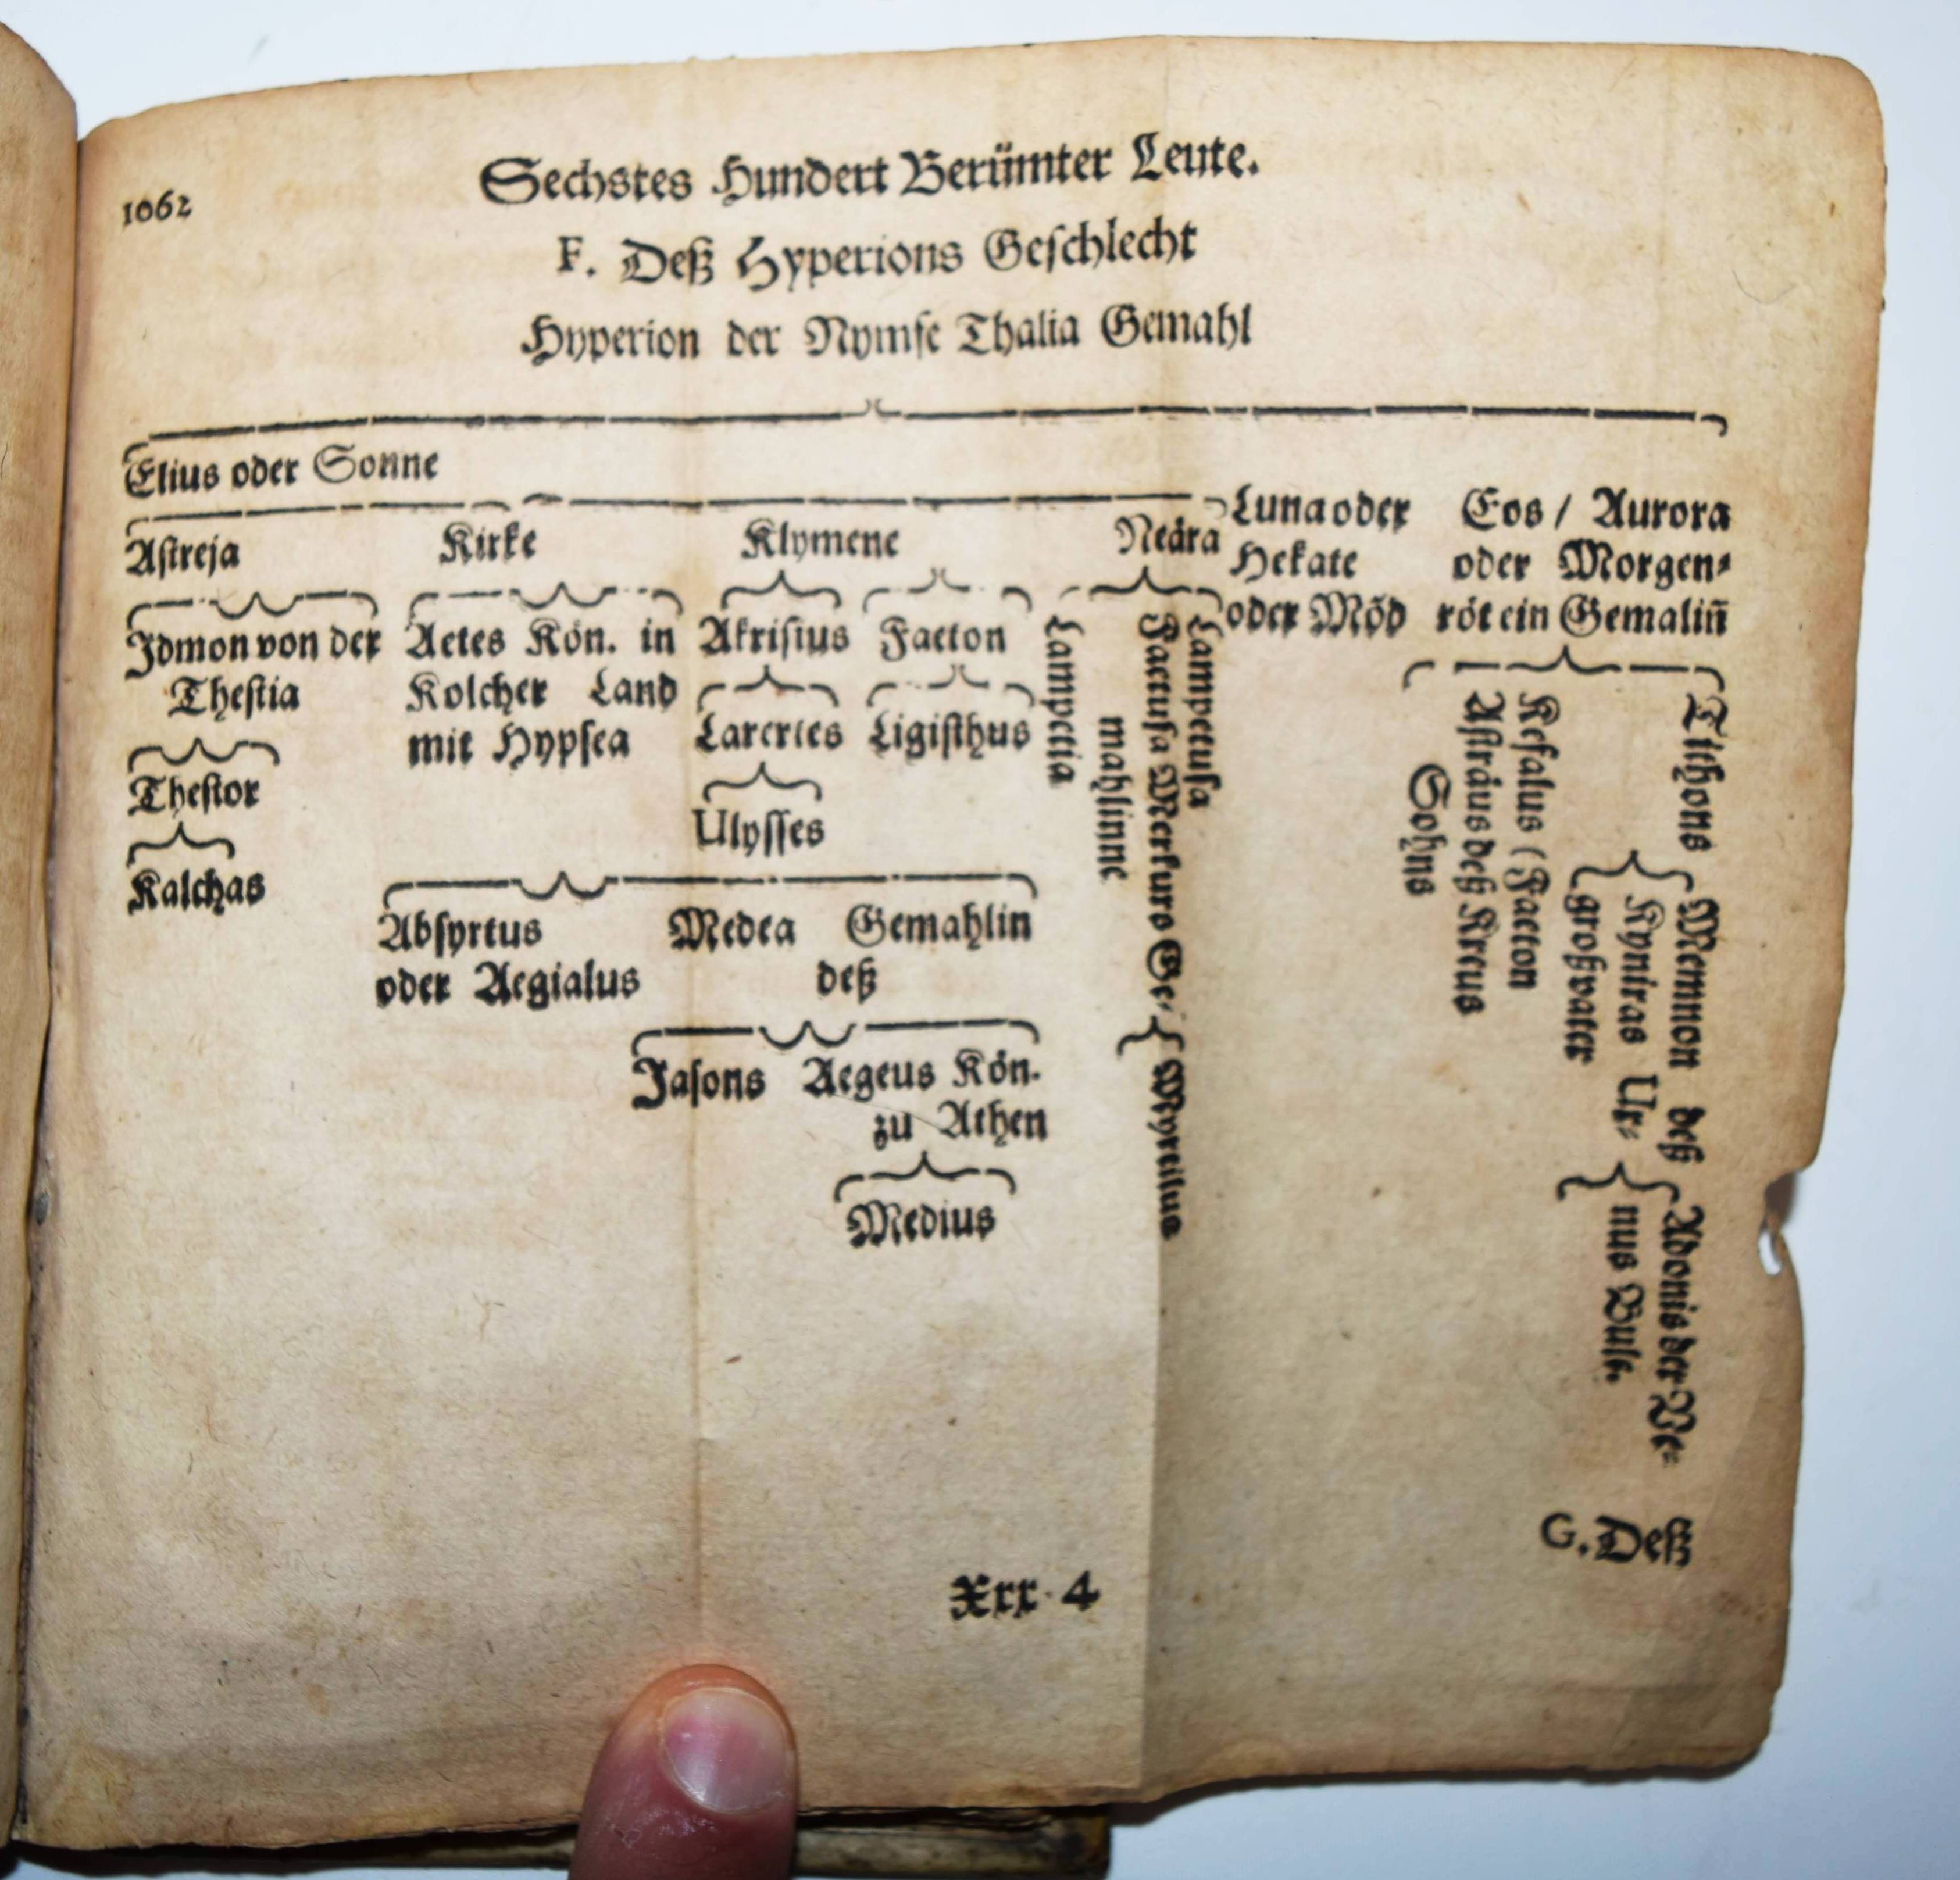 1062
Sechstes Hundert Berümter Leute.
F. Deß Hyperions Geschlecht
Hyperion der Nymfe Thalia Gemahl
Elius oder Sonne
Astreja
Kirke
Klymene
Neära
Luna oder
Hekate
oder Mõd
Eos / Aurora
oder Morgen-
röt ein Gemaliñ
Idmon von der
Thestia
Thestor
Kalchas
Aetes Kön. in
Kolcher Land
mit Hypsea
Akrisius
Faeton
Larertes
Ligisthus
Ulysses
Absyrtus
oder Aegialus
Medea Gemahlin
deß
Jasons
Aegeus Kön.
zu Athen
Medius
Lampetusa
Faetusa Merkurs Ge-
mahlinne
Lampetia
Myrtilus
Tithons
Kefalus (Faeton
Asträus deß Kreus
Sohns
Memnon deß
Kyniras Ur-
großvater
Adonis der Ve-
nus Bule.
G. Deß
Xxx 4